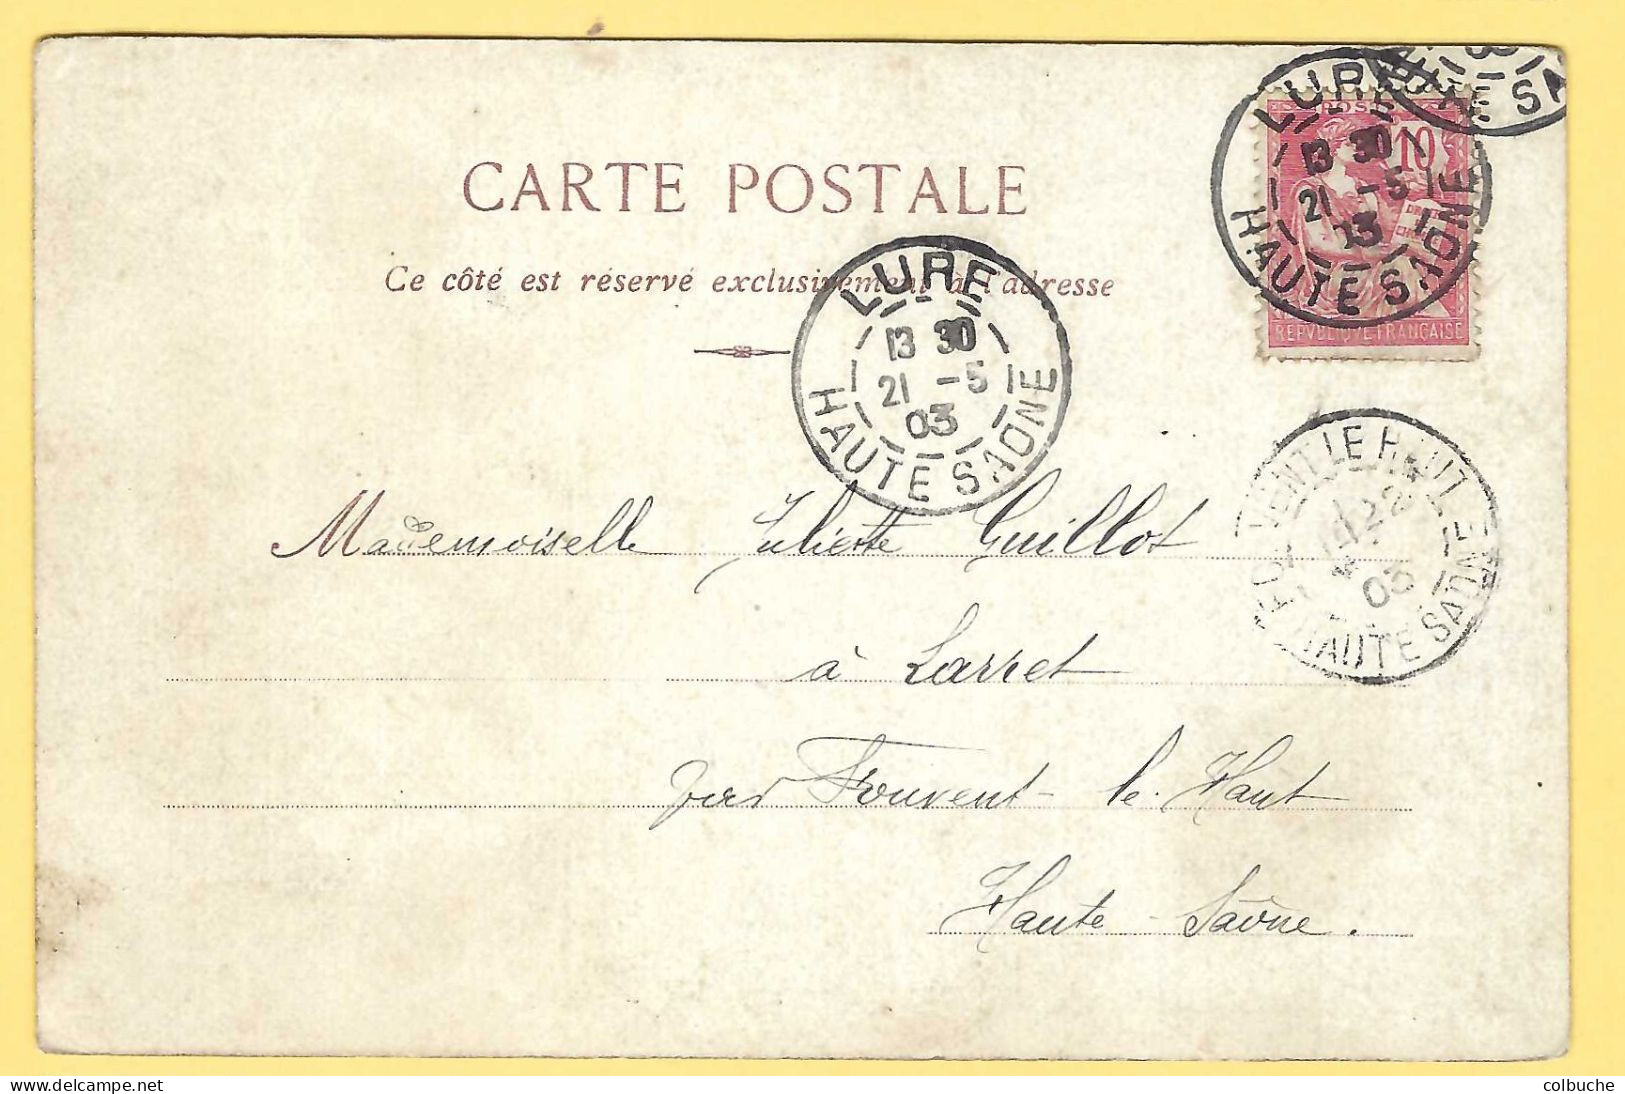 CARTE POSTALE
Ce côté est réservé exclusivement à l'adresse
LURE
13 30
21 -5
03
HAUTE SAONE
POSTES
10
REPVBLIQVE FRANÇAISE
LURE
13 30
21 -5
03
HAUTE SAONE
VENT LE HAUT
22
03
HAUTE SAONE
Mademoiselle Juliette Guillot
à Larret
par Fouvent-le-Haut
Haute-Saône.
colbuche